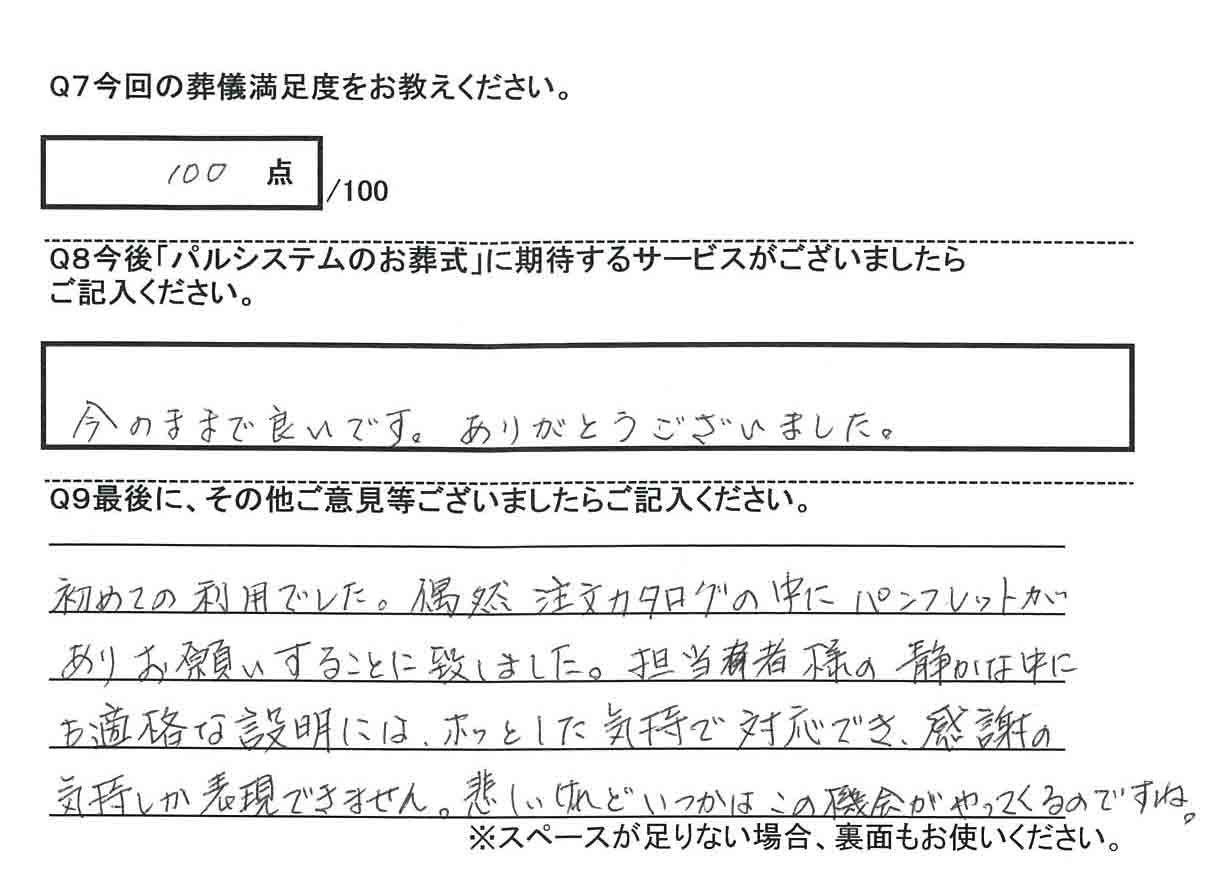 Q7今回の葬儀満足度をお教えください。
100 点
/100
Q8今後「パルシステムのお葬式」に期待するサービスがございましたら
ご記入ください。
今のままで良いです。ありがとうございました。
Q9最後に、その他ご意見等ございましたらご記入ください。
初めての利用でした。偶然注文カタログの中にパンフレットが
ありお願いすることに致しました。担当者様の静かな中に
も適格な説明には、ホッとした気持で対応でき、感謝の
気持しか表現できません。悲しいけれどいつかはこの機会がやってくるのですね。
※スペースが足りない場合、裏面もお使いください。